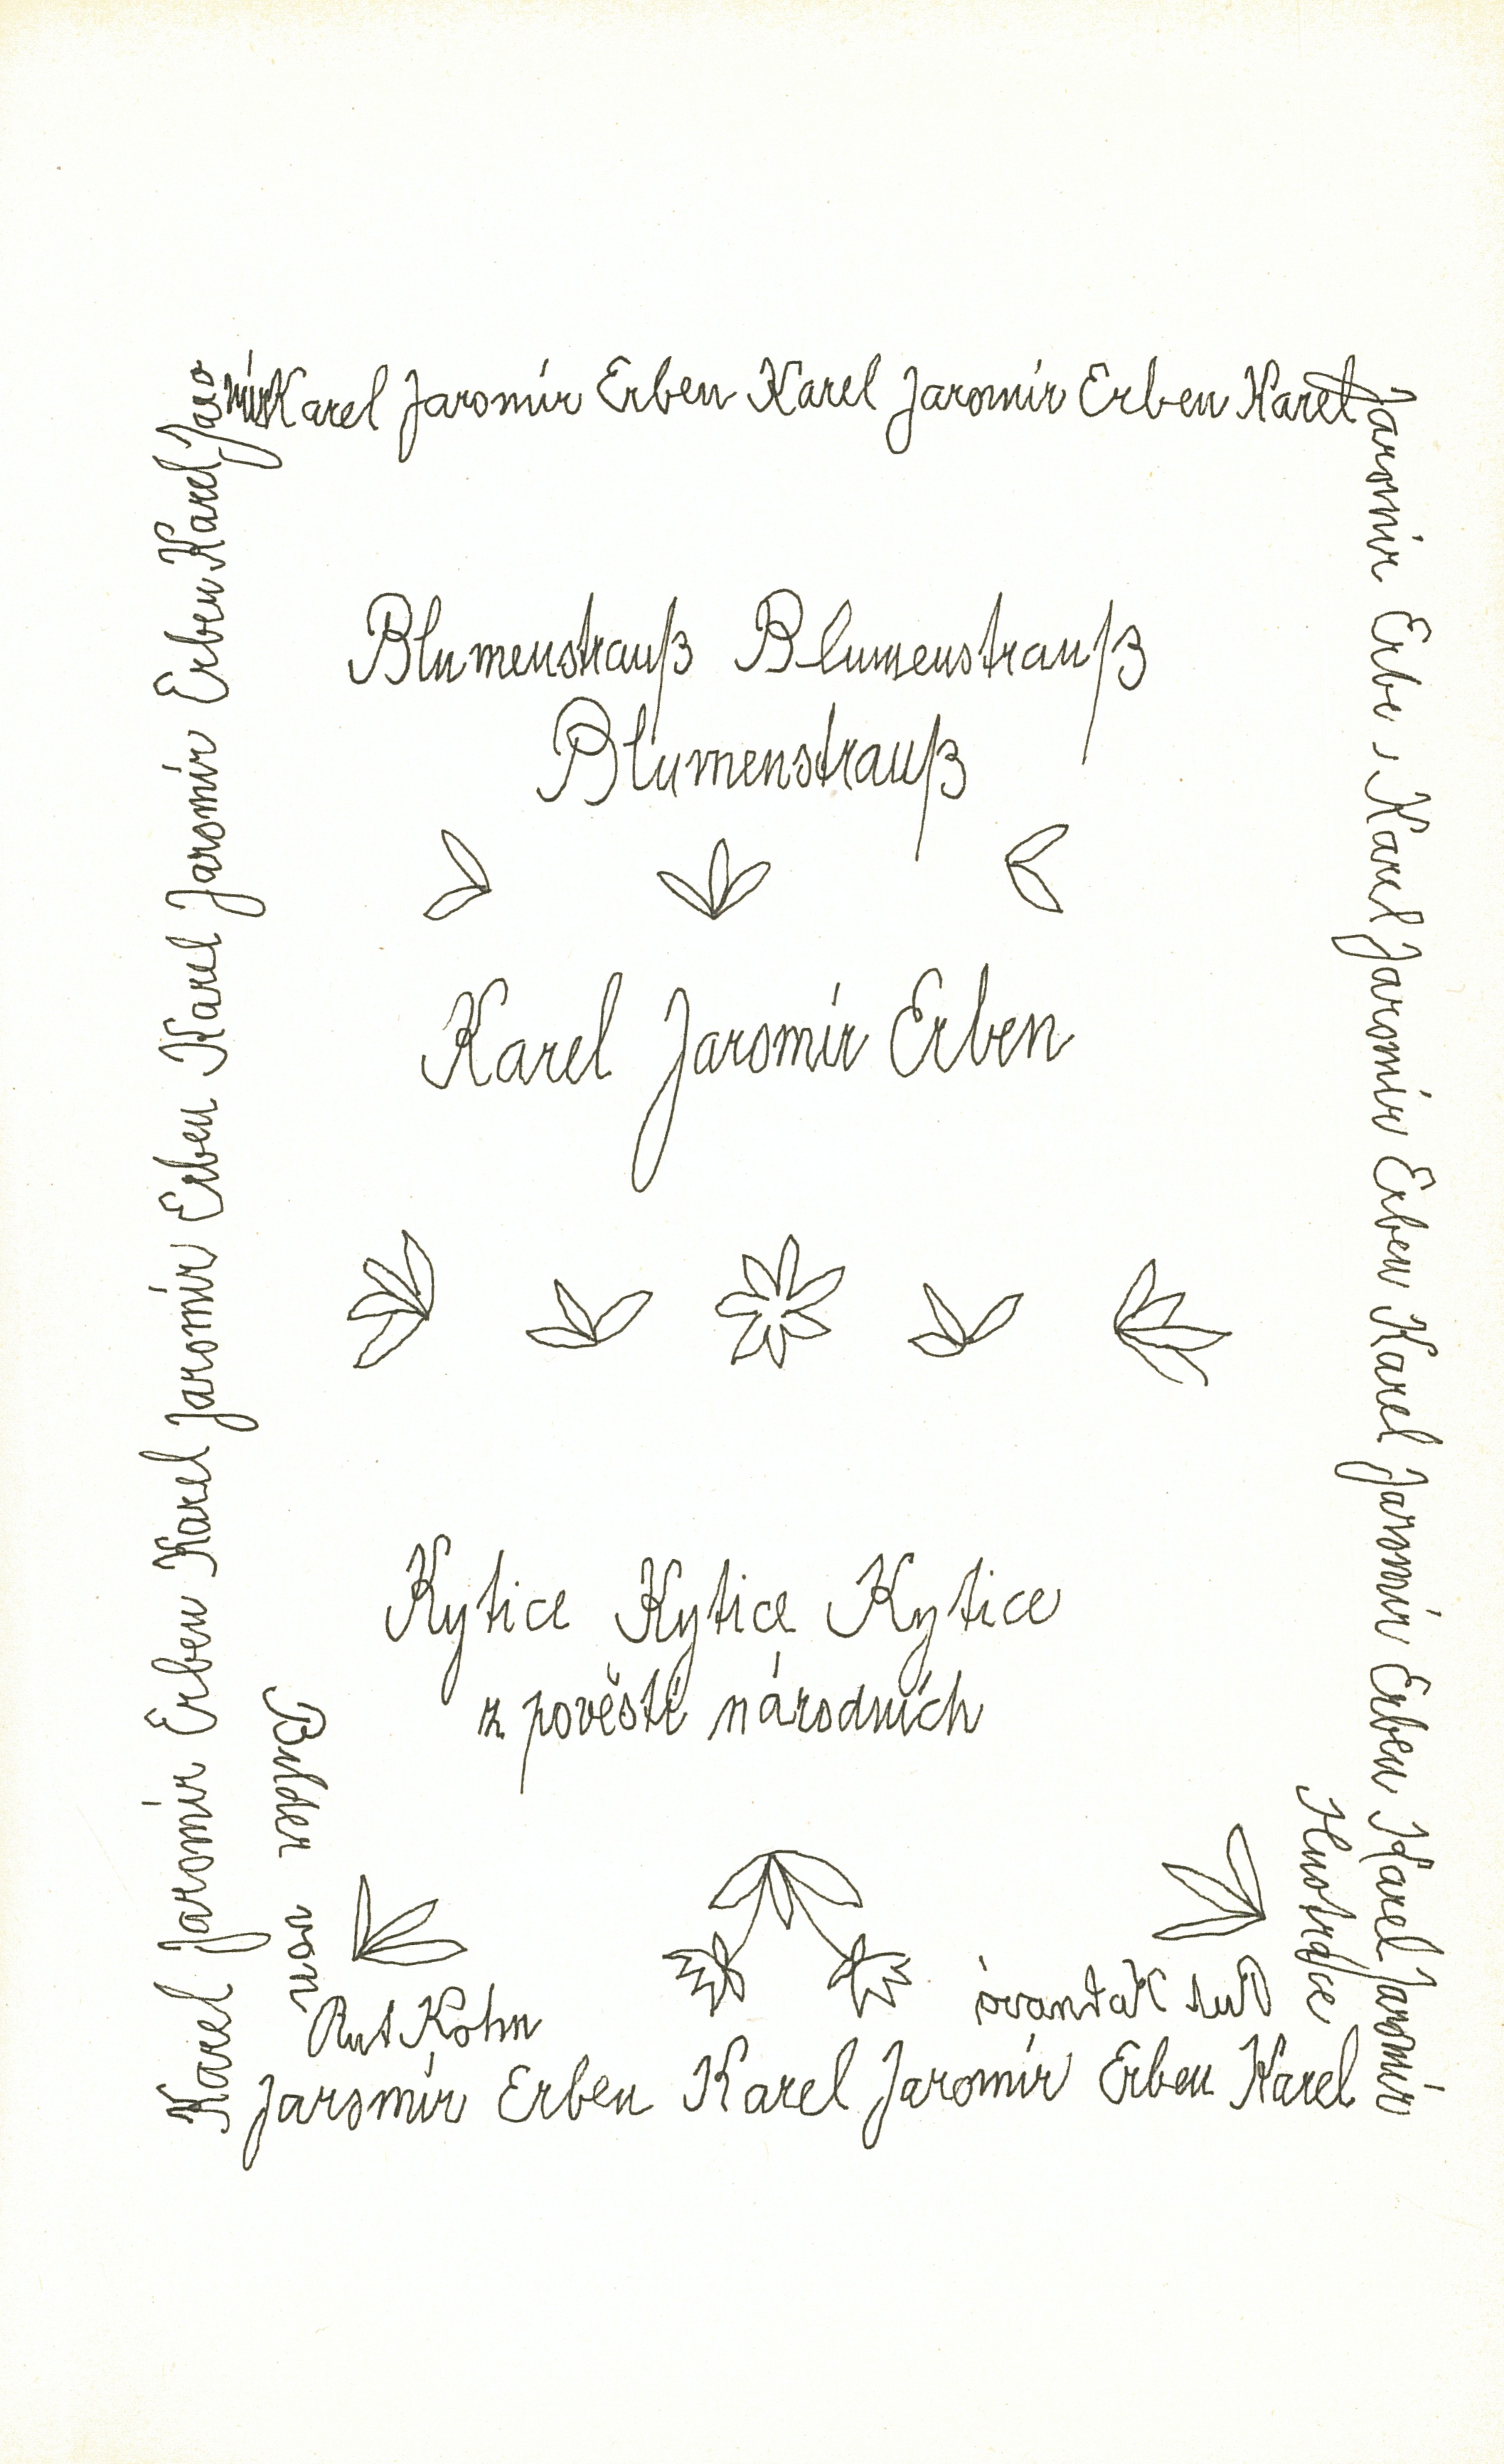 Karel Jaromír Erben Karel Jaromír Erben Karel
Jaromír Erbe, Karel Jaromír Erben Karel Jaromír Erben Karel Jaromír
Karel Jaromír Erben Karel Jaromír Erben Karel Jaromír Erben Karel Jaromír
Blumenstrauß Blumenstrauß
Blumenstrauß
Karel Jaromír Erben
Kytice Kytice Kytice
z pověstí národních
Bilder von
Rut Kohn
Rut
Jaromír Erben Karel Jaromír Erben Karel